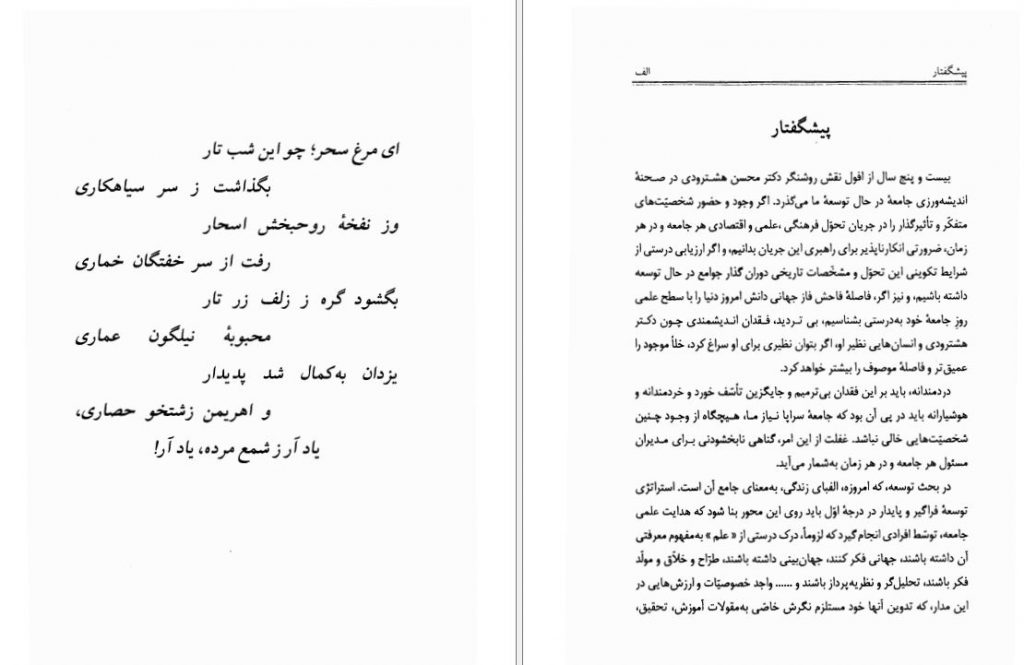 ای مرغ سحر؛ چو این شب تار
بگذاشت ز سر سیاهکاری
وز نفخهٔ روحبخش اسحار
رفت از سر خفتگان خماری
بگشود گره ز زلف زر تار
محبوبهٔ نیلگون عماری
یزدان به‌کمال شد پدیدار
و اهریمن زشتخو حصاری،
یاد آر ز شمع مرده، یاد آر!
پیشگفتار
الف
پیشگفتار
بیست و پنج سال از افول نقش روشنگر دکتر محسن هشترودی در صحنهٔ
اندیشه‌ورزی جامعهٔ در حال توسعهٔ ما می‌گذرد. اگر وجود و حضور شخصیّت‌های
متفکّر و تأثیرگذار را در جریان تحوّل فرهنگی ،علمی و اقتصادی هر جامعه و در هر
زمان، ضرورتی انکارناپذیر برای راهبری این جریان بدانیم، و اگر ارزیابی درستی از
شرایط تکوینی این تحوّل و مشخّصات تاریخی دوران گذار جوامع در حال توسعه
داشته باشیم، و نیز اگر، فاصلهٔ فاحش فاز جهانی دانش امروز دنیا را با سطح علمی
روزِ جامعهٔ خود به‌درستی بشناسیم، بی تردید، فقدان اندیشمندی چون دکتر
هشترودی و انسان‌هایی نظیر او، اگر بتوان نظیری برای او سراغ کرد، خلأ موجود را
عمیق‌تر و فاصلهٔ موصوف را بیشتر خواهد کرد.
دردمندانه، باید بر این فقدان بی‌ترمیم و جایگزین تأسّف خورد و خردمندانه و
هوشیارانه باید در پی آن بود که جامعهٔ سراپا نیاز ما، هیچگاه از وجود چنین
شخصیّت‌هایی خالی نباشد. غفلت از این امر، گناهی نابخشودنی برای مدیران
مسئول هر جامعه و در هر زمان به‌شمار می‌آید.
در بحث توسعه، که امروزه، الفبای زندگی، به‌معنای جامع آن است. استراتژی
توسعهٔ فراگیر و پایدار در درجهٔ اوّل باید روی این محور بنا شود که هدایت علمی
جامعه، توسّط افرادی انجام گیرد که لزوماً، درک درستی از « علم » به‌مفهوم معرفتی
آن داشته باشند، جهانی فکر کنند، جهان‌بینی داشته باشند، طرّاح و خلّاق و مولّد
فکر باشند، تحلیل‌گر و نظریه‌پرداز باشند و ...... واجد خصوصیّات و ارزش‌هایی در
این مدار، که تدوین آنها خود مستلزم نگرش خاصّی به‌مقولات آموزش، تحقیق،